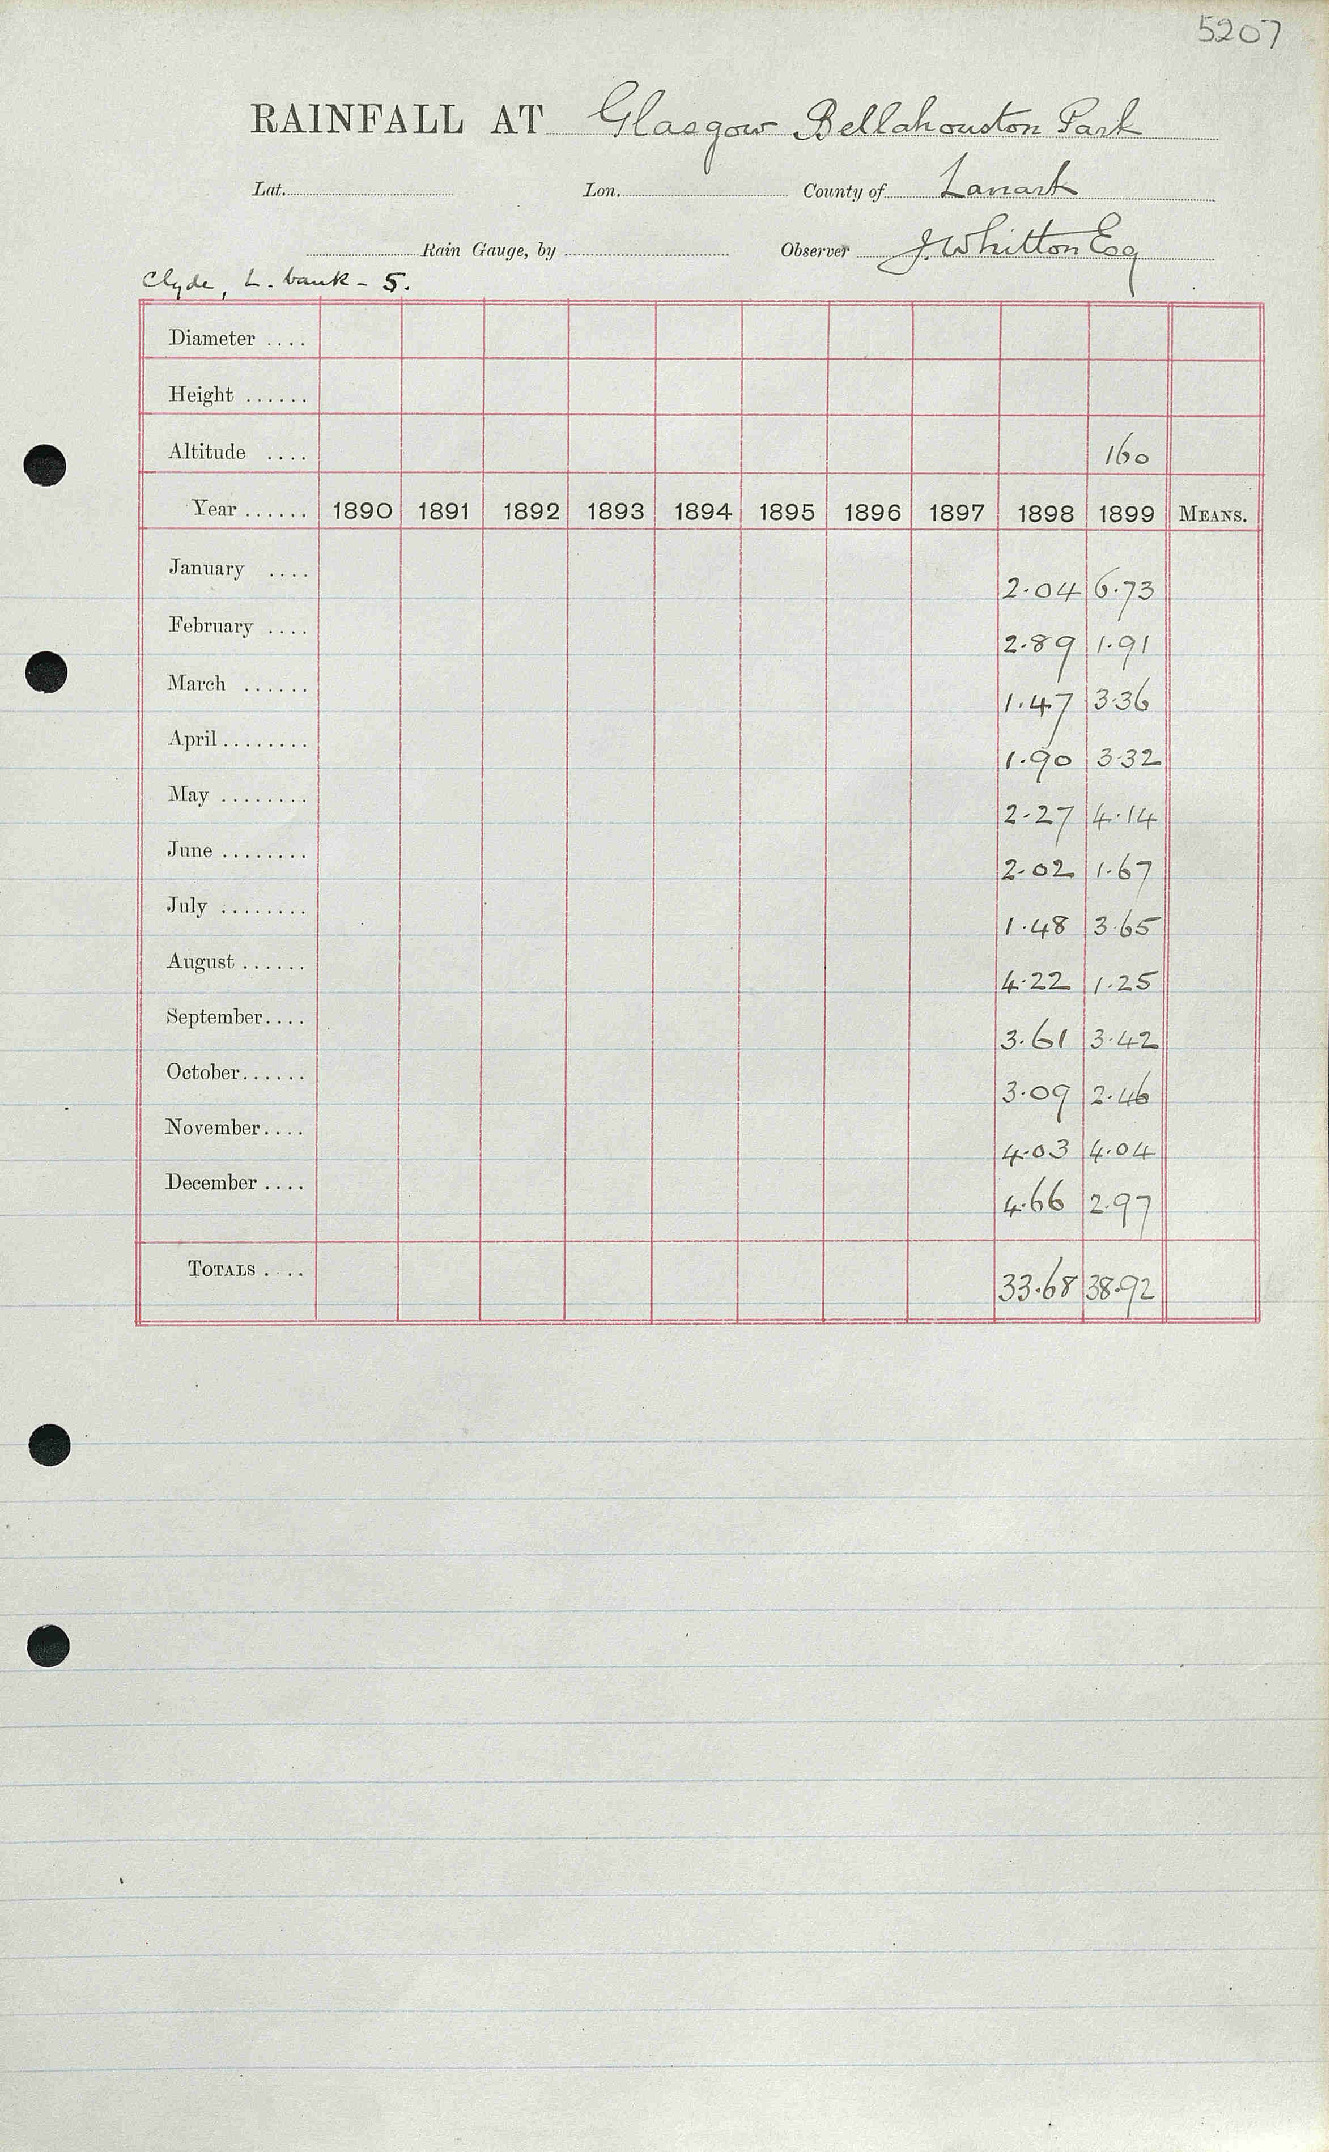 5207
RAINFALL AT Glasgow Bellahouston Park
Lat. Lon. County of Lanark
Rain Gauge, by Observer J. Whitton Esq
Clyde, L. bank - 5.
Diameter ....
Height ......
Altitude .... 160
Year ...... 1890 1891 1892 1893 1894 1895 1896 1897 1898 1899 MEANS.
January .... 2.04 6.73
February .... 2.89 1.91
March ...... 1.47 3.36
April ........ 1.90 3.32
May ........ 2.27 4.14
June ........ 2.02 1.67
July ........ 1.48 3.65
August ...... 4.22 1.25
September.... 3.61 3.42
October...... 3.09 2.46
November.... 4.03 4.04
December .... 4.66 2.97
TOTALS .... 33.68 38.92